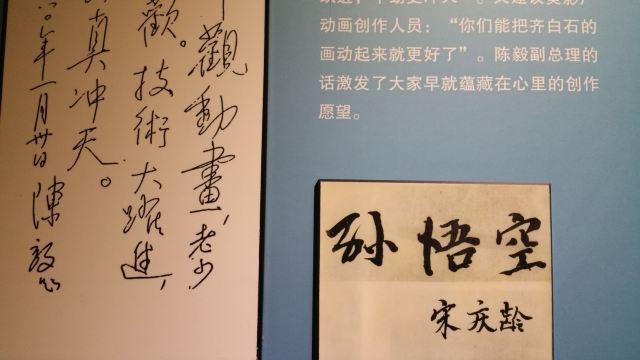 觀動畫，老少
歡。技術大躍進，
真冲天。
〇年一月卅日陳毅
动画创作人员：“你们能把齐白石的
画动起来就更好了”。陈毅副总理的
话激发了大家早就蕴藏在心里的创作
愿望。
孙悟空
宋庆龄